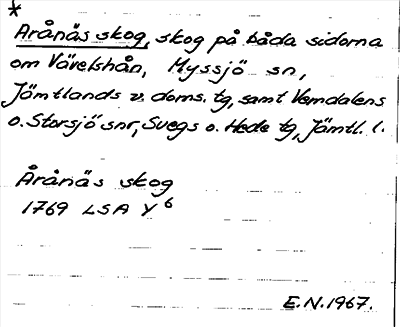 *
Arånäs skog, skog på båda sidorna
om Vävelshån, Myssjö sn,
Jämtlands v. doms. tg, samt Vemdalens
o. Storsjö snr, Svegs o. Hede tg, Jämtl. l.
Årånäs skog
1769 LSA Y 6
E.N. 1967.